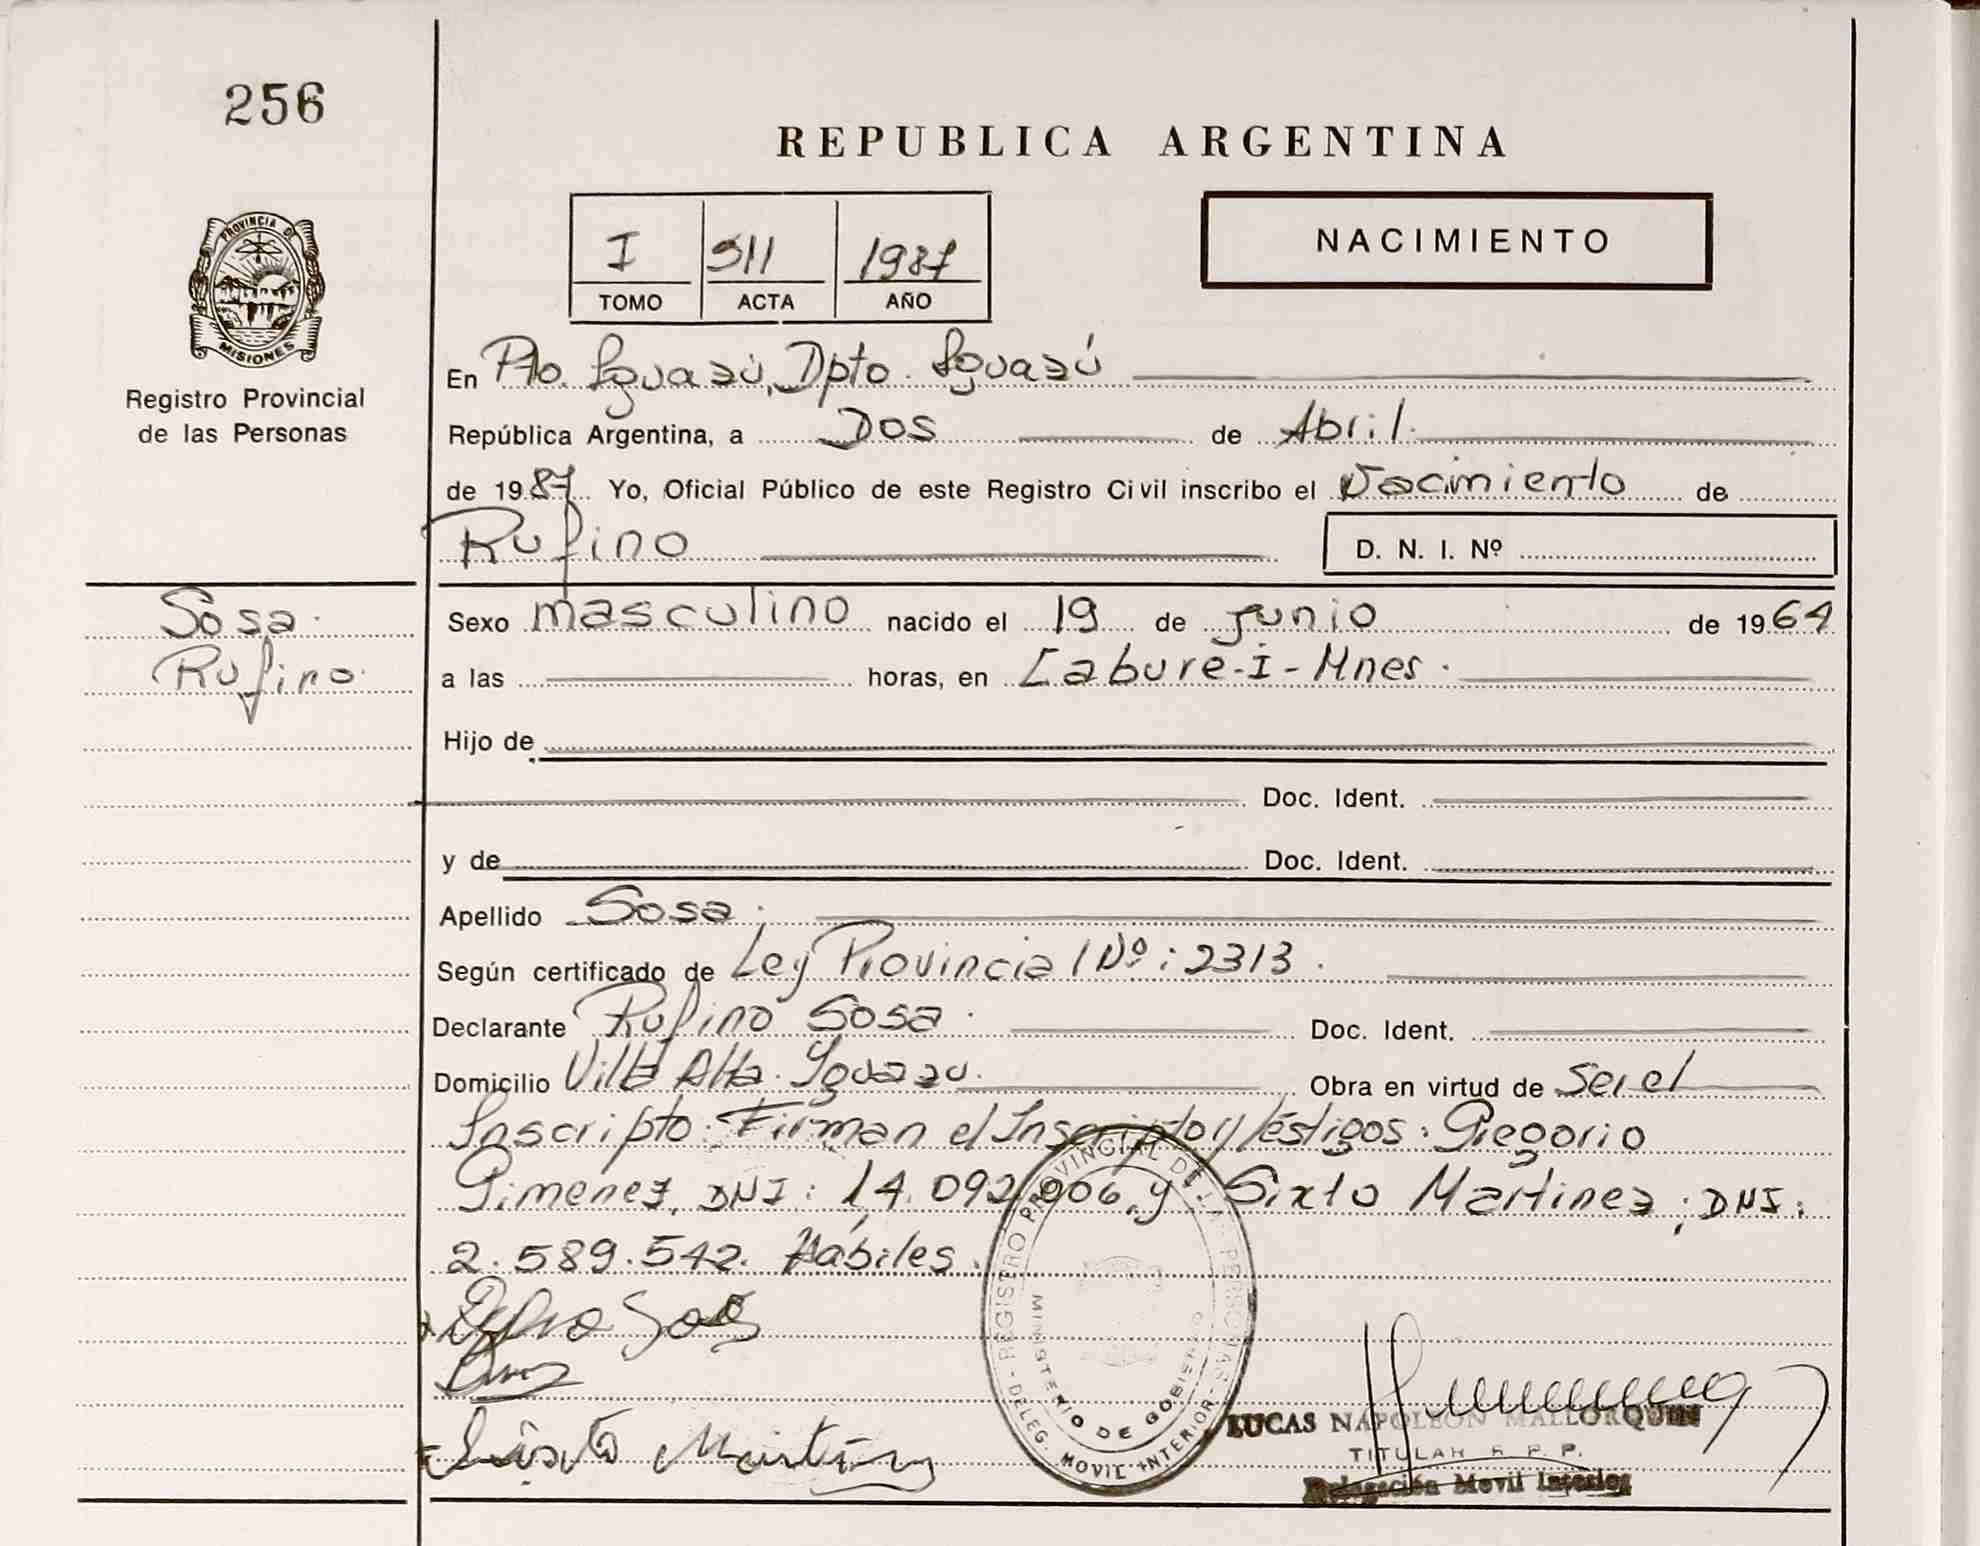 256
REPUBLICA ARGENTINA
I 511 1987
TOMO ACTA AÑO
NACIMIENTO
PROVINCIA DE
MISIONES
Registro Provincial
de las Personas
En Pto. Iguazú, Dpto. Iguazú
República Argentina, a Dos de Abril.
de 1987 Yo, Oficial Público de este Registro Civil inscribo el Nacimiento de
Rufino D. N. I. Nº
Sosa.
Rufino.
Sexo masculino nacido el 19 de junio de 1964
a las horas, en Cabure-I-Mnes.
Hijo de
Doc. Ident.
y de Doc. Ident.
Apellido Sosa.
Según certificado de Ley Provincial Nº: 2313.
Declarante Rufino Sosa. Doc. Ident.
Domicilio Villa Alta. Iguazu. Obra en virtud de Ser el
Inscripto. Firman el Inscripto y Téstigos: Gregorio
Gimenez, DNI: 14.092.006, y Sixto Martinez; DNI:
2.589.542. Hábiles.
REGISTRO PROVINCIAL DE LAS PERSONAS
MINISTERIO DE GOBIERNO
DELEG. MOVIL INTERIOR
Sixto Martínez
LUCAS NAPOLEON MALLORQUIN
TITULAR R. P. P.
Delegación Movil Interior